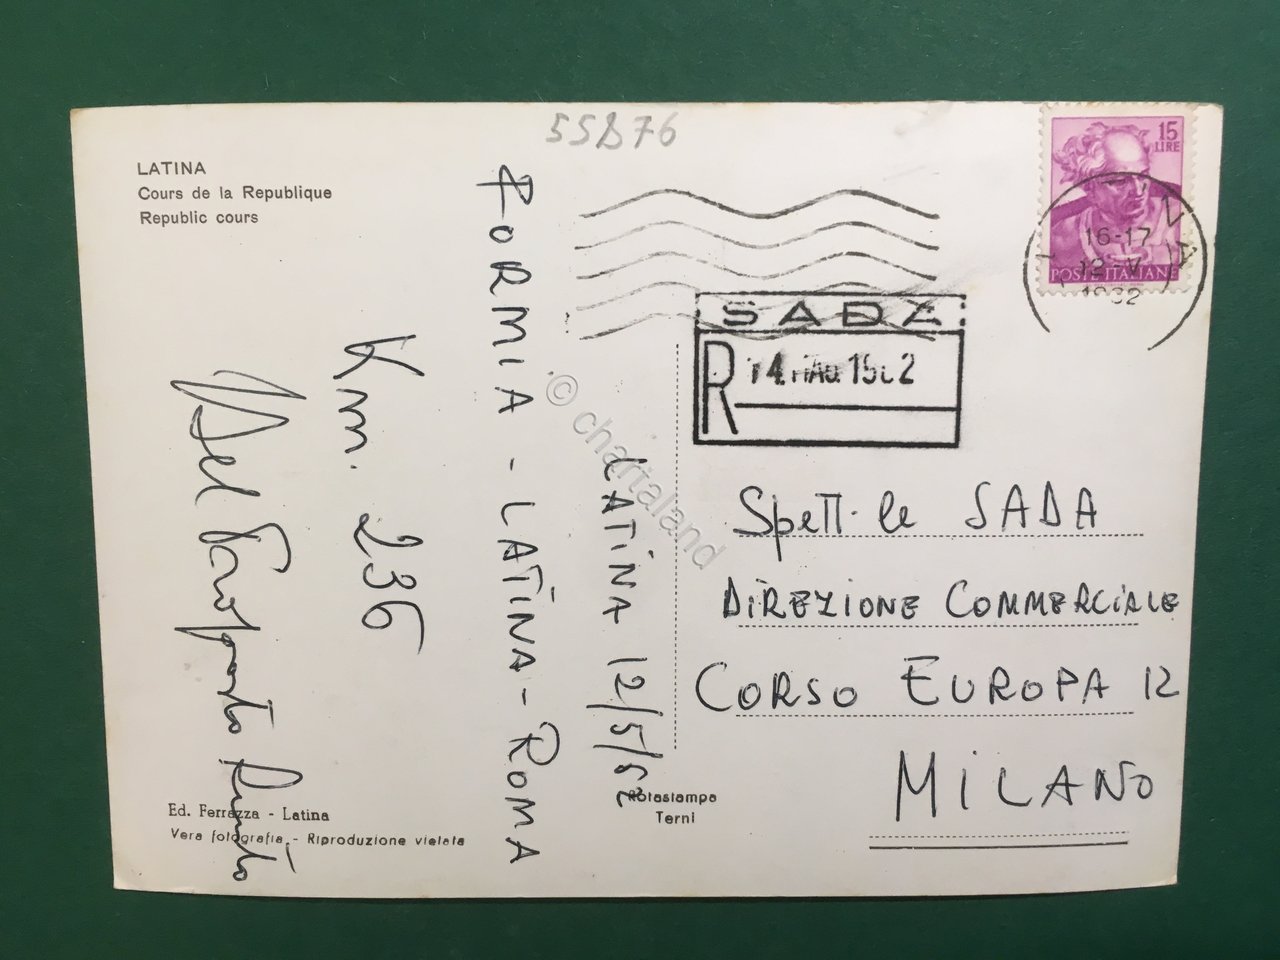 55B76
LATINA
Cours de la Republique
Republic cours
15
LIRE
POSTE ITALIANE
16-17
12-V
SADA
R 14 MAG. 1962
© chartaland
LATINA 12/5/62
FORMIA - LATINA - ROMA
Km. 236
Spett.le SADA
DIREZIONE COMMERCIALE
CORSO EUROPA 12
MILANO
Ed. Ferrazza - Latina
Vera fotografia - Riproduzione vietata
Rotastampa
Terni